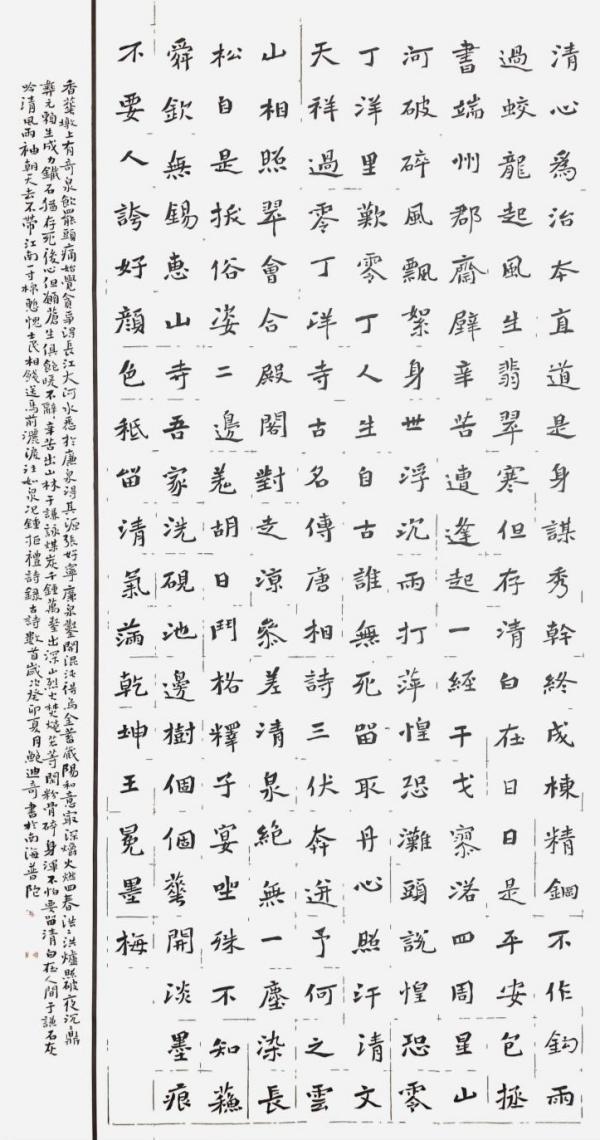 清心為治本直道是身謀秀幹終成棟精鋼不作鈎雨
過蛟龍起風生翡翠寒但存清白在日日是平安包拯
書端州郡齋壁辛苦遭逢起一經干戈寥落四周星山
河破碎風飄絮身世浮沉雨打萍惶恐灘頭說惶恐零
丁洋里歎零丁人生自古誰無死留取丹心照汗清文
天祥過零丁洋寺古名傳唐相詩三伏奔迸予何之雲
山相照翠會合殿閣對走涼參差清泉絕無一塵染長
松自是拔俗姿二邊羌胡日鬥格釋子宴坐殊不知蘇
舜欽無錫惠山寺吾家洗硯池邊樹個個華開淡墨痕
不要人誇好顏色祗留清氣滿乾坤王冕墨梅
香華墩上有奇泉飲罷頭痛始覺貪得長江大河水悉於廉泉得其源張好寧廉泉鑿開混沌得烏金蓄藏陽和意最深爝火燃回春浩浩洪爐照破夜沉沉鼎
彝元賴生成力鐵石猶存死後心但願蒼生俱飽暖不辭辛苦出山林于謙詠煤炭千鍾萬鑿出深山烈火焚燒若等閒粉骨碎身渾不怕要留清白在人間于謙石灰
吟清風兩袖朝天去不帶江南一寸棉慙愧士民相餞送馬前灑淚注如泉況鍾拒禮詩錄古詩數首歲次癸卯夏月鮑迪奇書於南海普陀